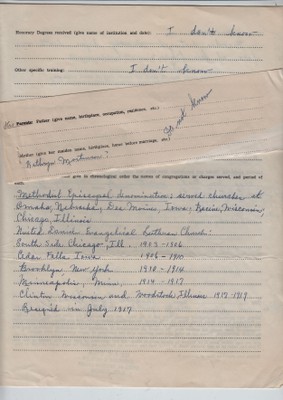 Honorary Degrees received (give name of institution and date):
I don't know
Other specific training:
I don't know
Parents: Father (give name, birthplace, occupation, residence, etc.)
Do not know
Mother (give her maiden name, birthplace, home before marriage, etc.)
give in chronological order the names of congregations or charges served, and period of
each.
Methodist Episcopal denomination; served churches at
Omaha, Nebraska; Des Moines, Iowa; Racine, Wisconsin,
Chicago, Illinois
United Danish Evangelical Lutheran Church:
South Side Chicago, Ill. 1903-1906
Cedar Falls Iowa 1906-1910
Brooklyn, New York 1910-1914
Minneapolis, Minn. 1914-1917
Clinton, Wisconsin and Woodstock Illinois 1917-1917
Resigned in July 1917